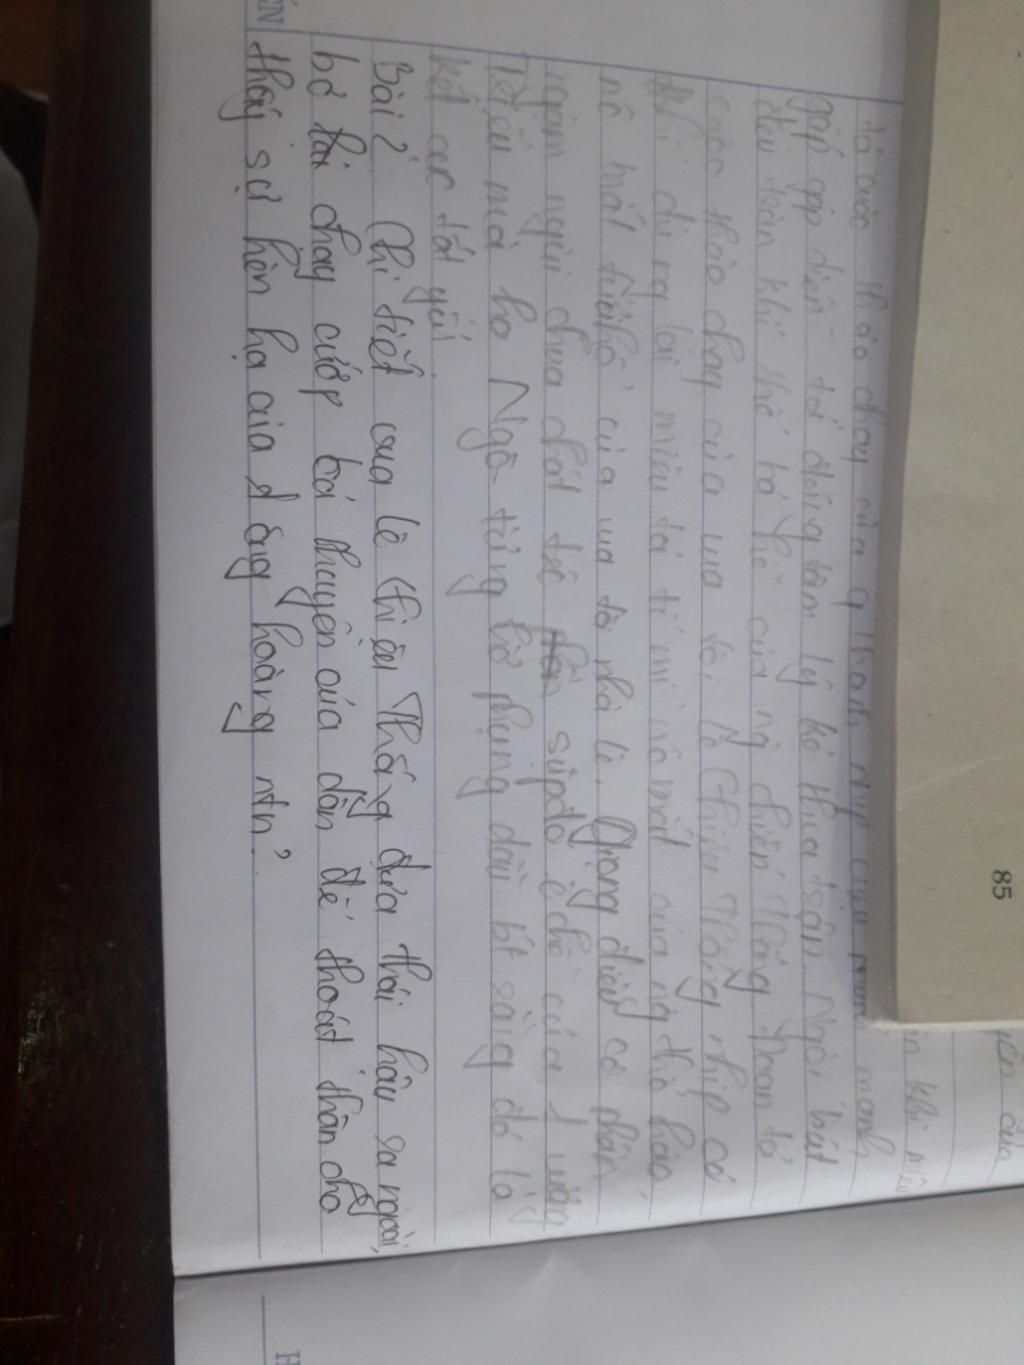 85
yên của
ận khi miêu
tả cuộc tháo chạy của q thanh nhịp của mạnh
gấp gáp diễn tả đúng tâm lý kẻ thua trận. Ngòi bút
đều toàn khí thế hả hê của ng chiến thắng. Đoạn tả
cuộc tháo chạy của vua tôi lê Chiêu Thống nhịp có
khi dừng lại miêu tả tỉ mỉ nc mắt của ng thổ hào,
nc mắt tủi hổ của vua tôi nhà lê. Giọng điệu có phần
ngậm ngùi chua chát trc sự sụp đổ ê chề của 1 vương
triều mà họ Ngô từng thờ phụng dẫu bt rằng đó là
kết cục tất yếu.
Bài 2. Chi tiết vua lê Chiêu Thống đưa thái hậu ra ngoài,
bở hải chạy cướp cả thuyền của dân để thoát thân cho
thấy sự hèn hạ của 1 ông hoàng ntn?
ẾN
H